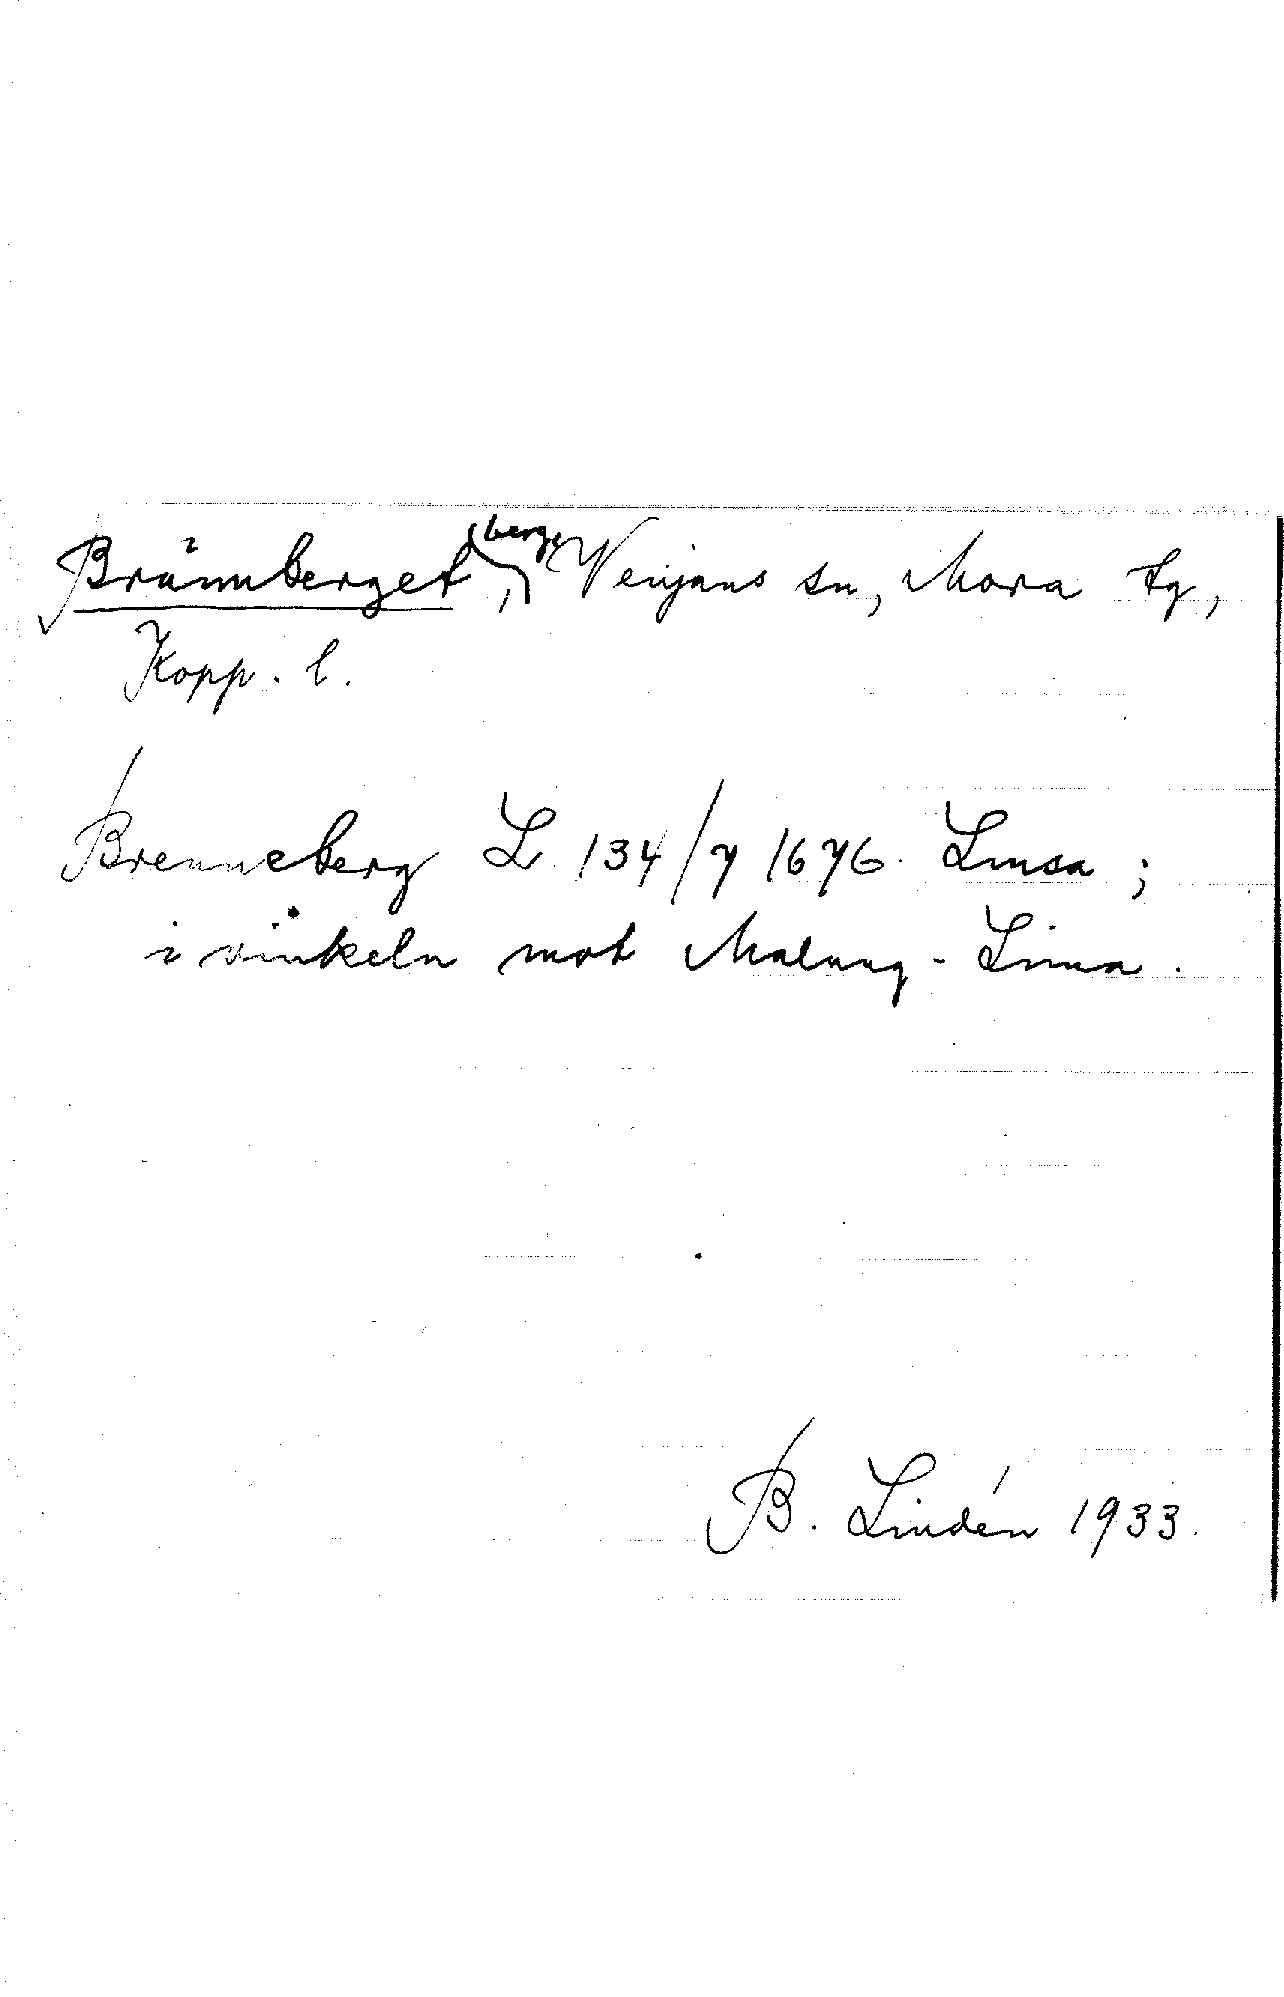 Brännberget, berg, Venjans sn, Mora tg,
Kopp. l.
Brenneberg L 134/7 1676. Limsa;
i vinkeln mot Malung-Lima.
B. Lindén 1933.